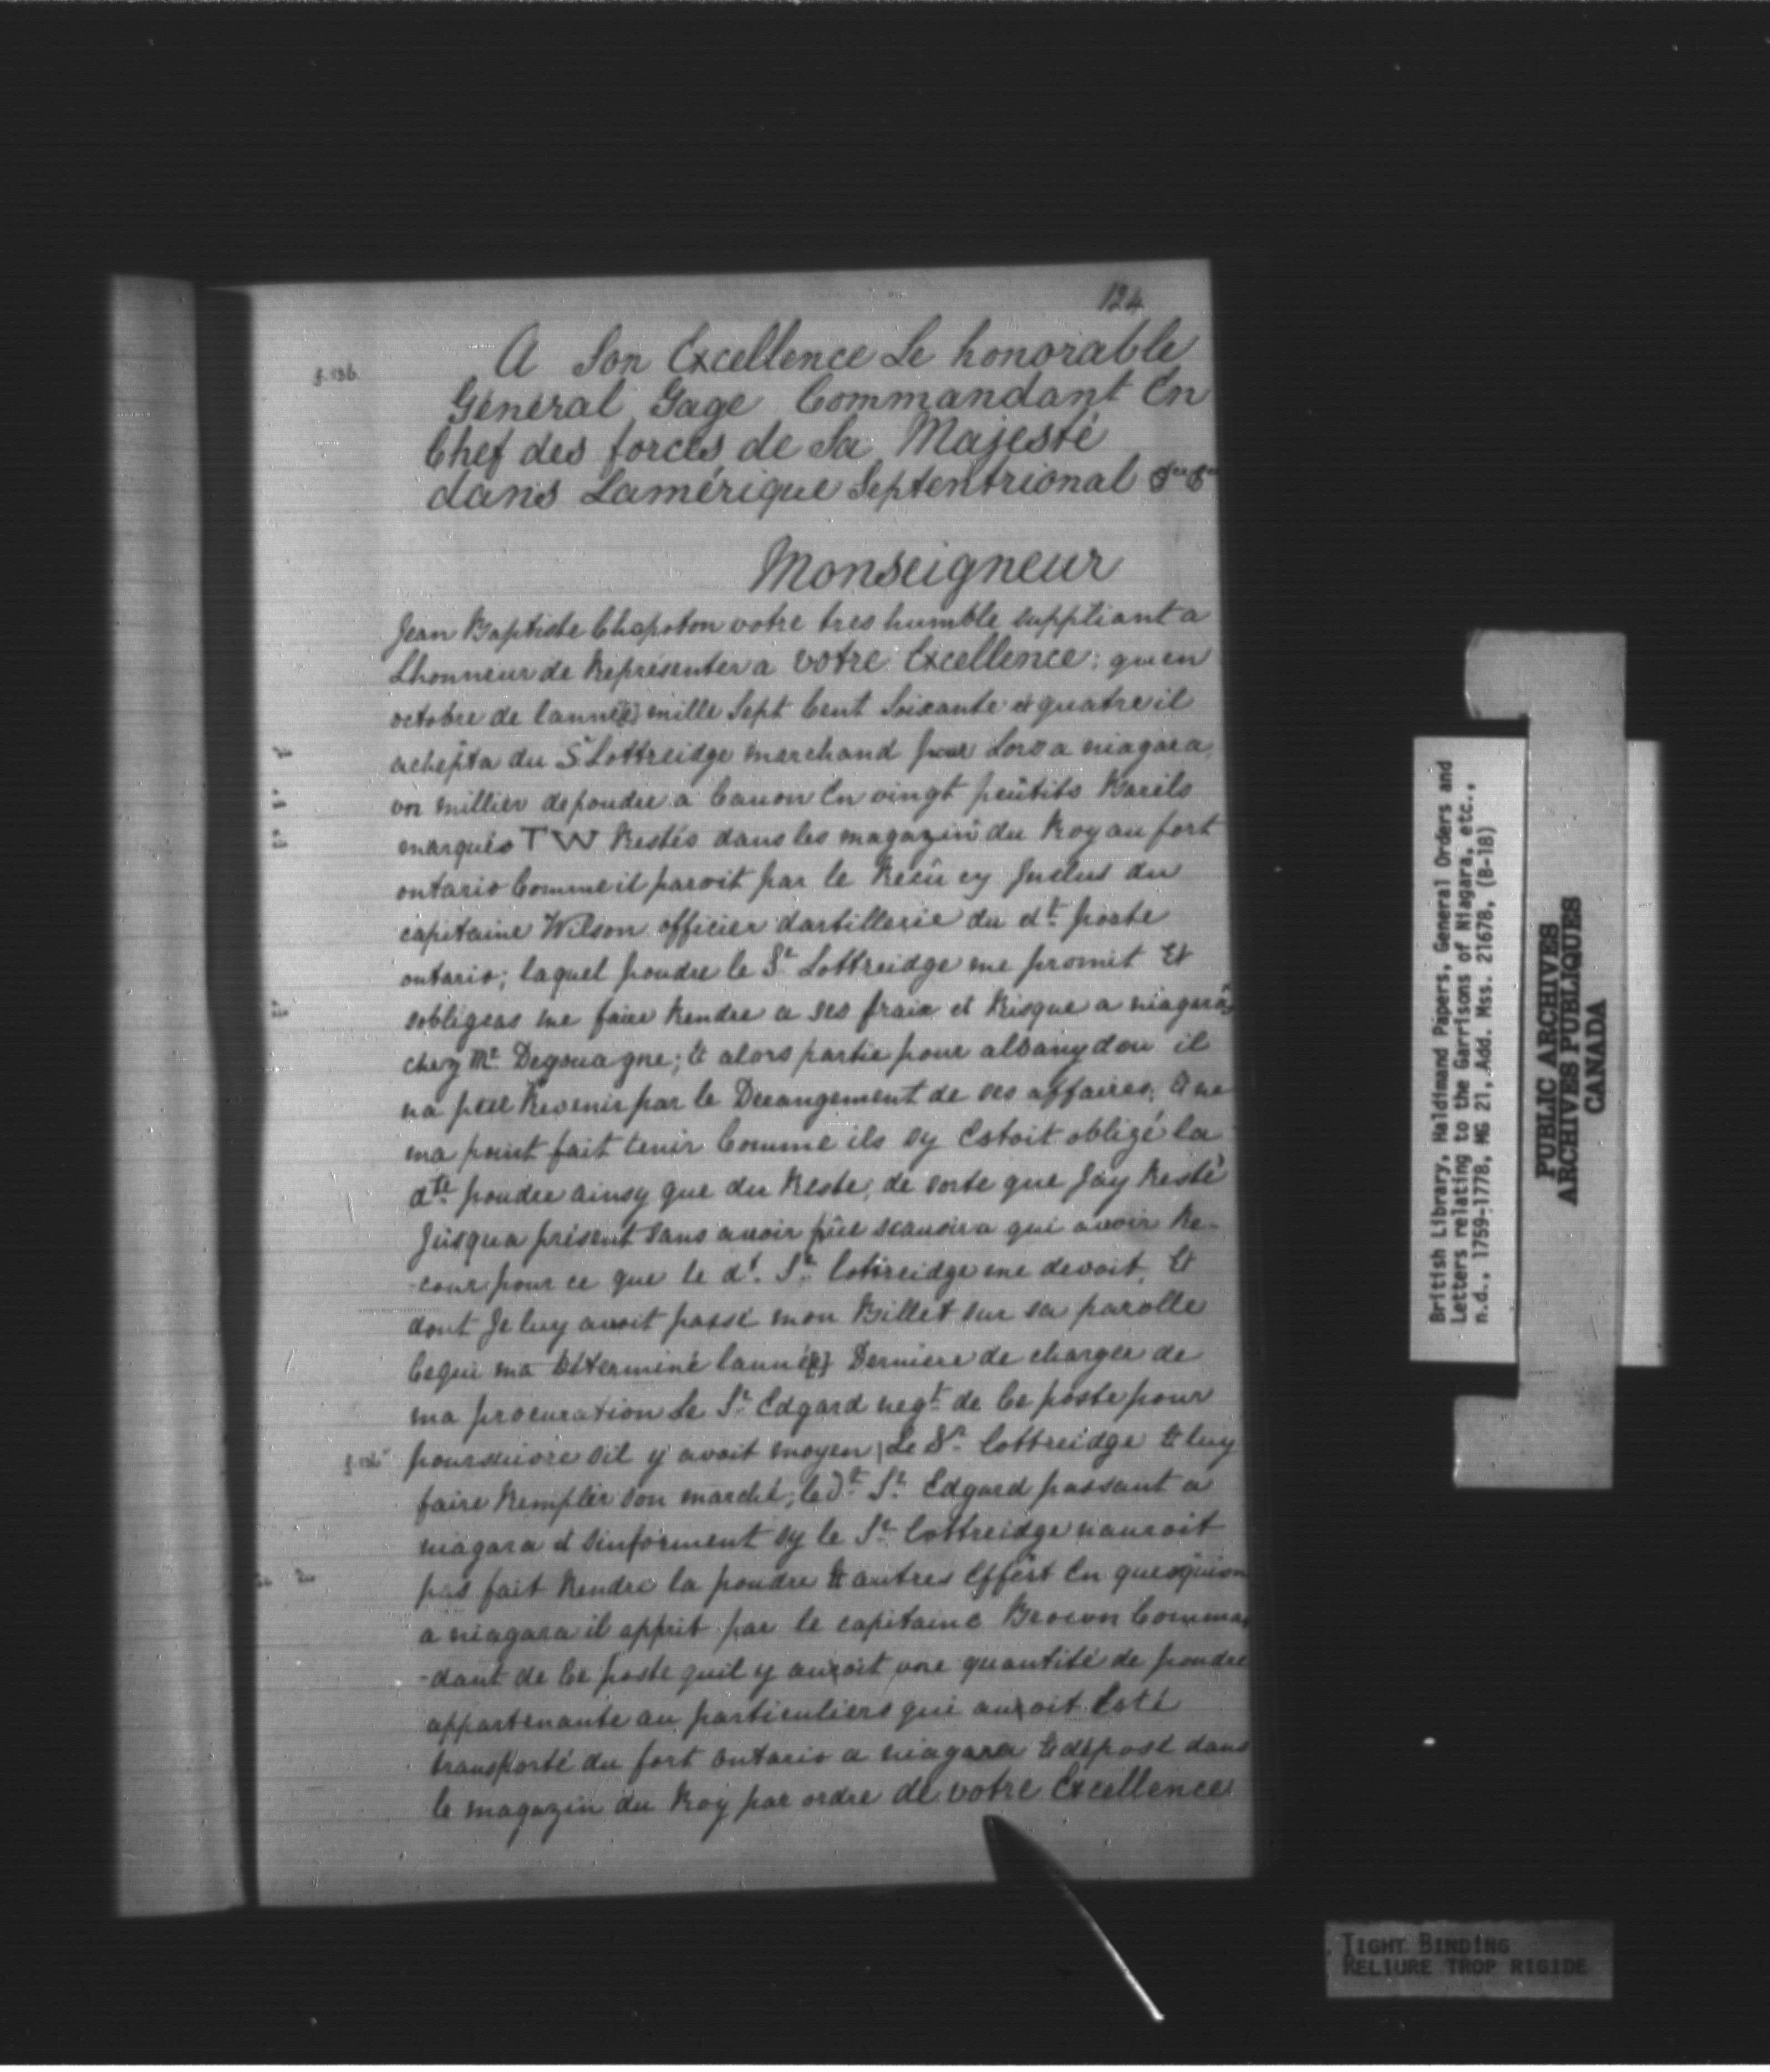 124
A Son Excellence Le honorable
Général Gage Commandant En
Chef des forces de Sa Majesté
dans Lamérique Septentrional &ca &ca
Monseigneur
Jean Baptiste Chapoton votre tres humble suppliant a
Lhonneur de Représenter a votre Excellence: quen
octobre de lanné[e] mille Sept Cent Soixante et quatre il
achepta du Sr. Lottreidge marchand pour Lors a niagara,
un millier de poudre a Canon En vingt peûtits Barils
marqués TW Restés dans les magazin du Roy au fort
ontario Comme il paroit par le Recû cy Inclus du
capitaine Wilson officier dartillerie du dt. poste
ontario; laquel poudre le Sr. Lottreidge me promit Et
sobligeas me faire Rendre a ses fraix et Risque a niagara,
chez Mr. Degouagne; Et alors partie pour albany dou il
na peue Revenir par le Derangement de ses affaires, Et ne
ma point fait tenir Comme ils sy Estoit obligé la
dte. poudre ainsy que du Reste; de sorte que Jay Resté
Jusqua présent sans avoir pûe scavoir a qui avoir Re-
-cour pour ce que le dt. Sr. Lottreidge me devoit, Et
dont Je luy avoit passé mon Billet sur sa parolle
Cequi ma Déterminé lanné[e] Derniere de charger de
ma procuration Le Sr. Edgard negt. de Ce poste pour
poursuivre sil y avoit moyen Le Sr. Lottreidge Et luy
faire Remplir son marché; le Dt. Sr. Edgard passant a
niagara et sinforment sy le Sr. Lottreidge nauroit
pas fait Rendre la poudre Et autres Effêst En quesquion
a niagara il apprit par le capitaine Brown Comman
-dant de Ce poste quil y auroit une quantité de poudre
appartenante au particuliers qui auroit Esté
transporté du fort ontario a niagara Et déposé dans
le magazin du Roy par ordre de votre Excellence
British Library, Haldimand Papers, General Orders and
Letters relating to the Garrisons of Niagara, etc.,
n.d., 1759-1778, MG 21, Add. Mss. 21678, (B-18)
PUBLIC ARCHIVES
ARCHIVES PUBLIQUES
CANADA
TIGHT BINDING
RELIURE TROP RIGIDE